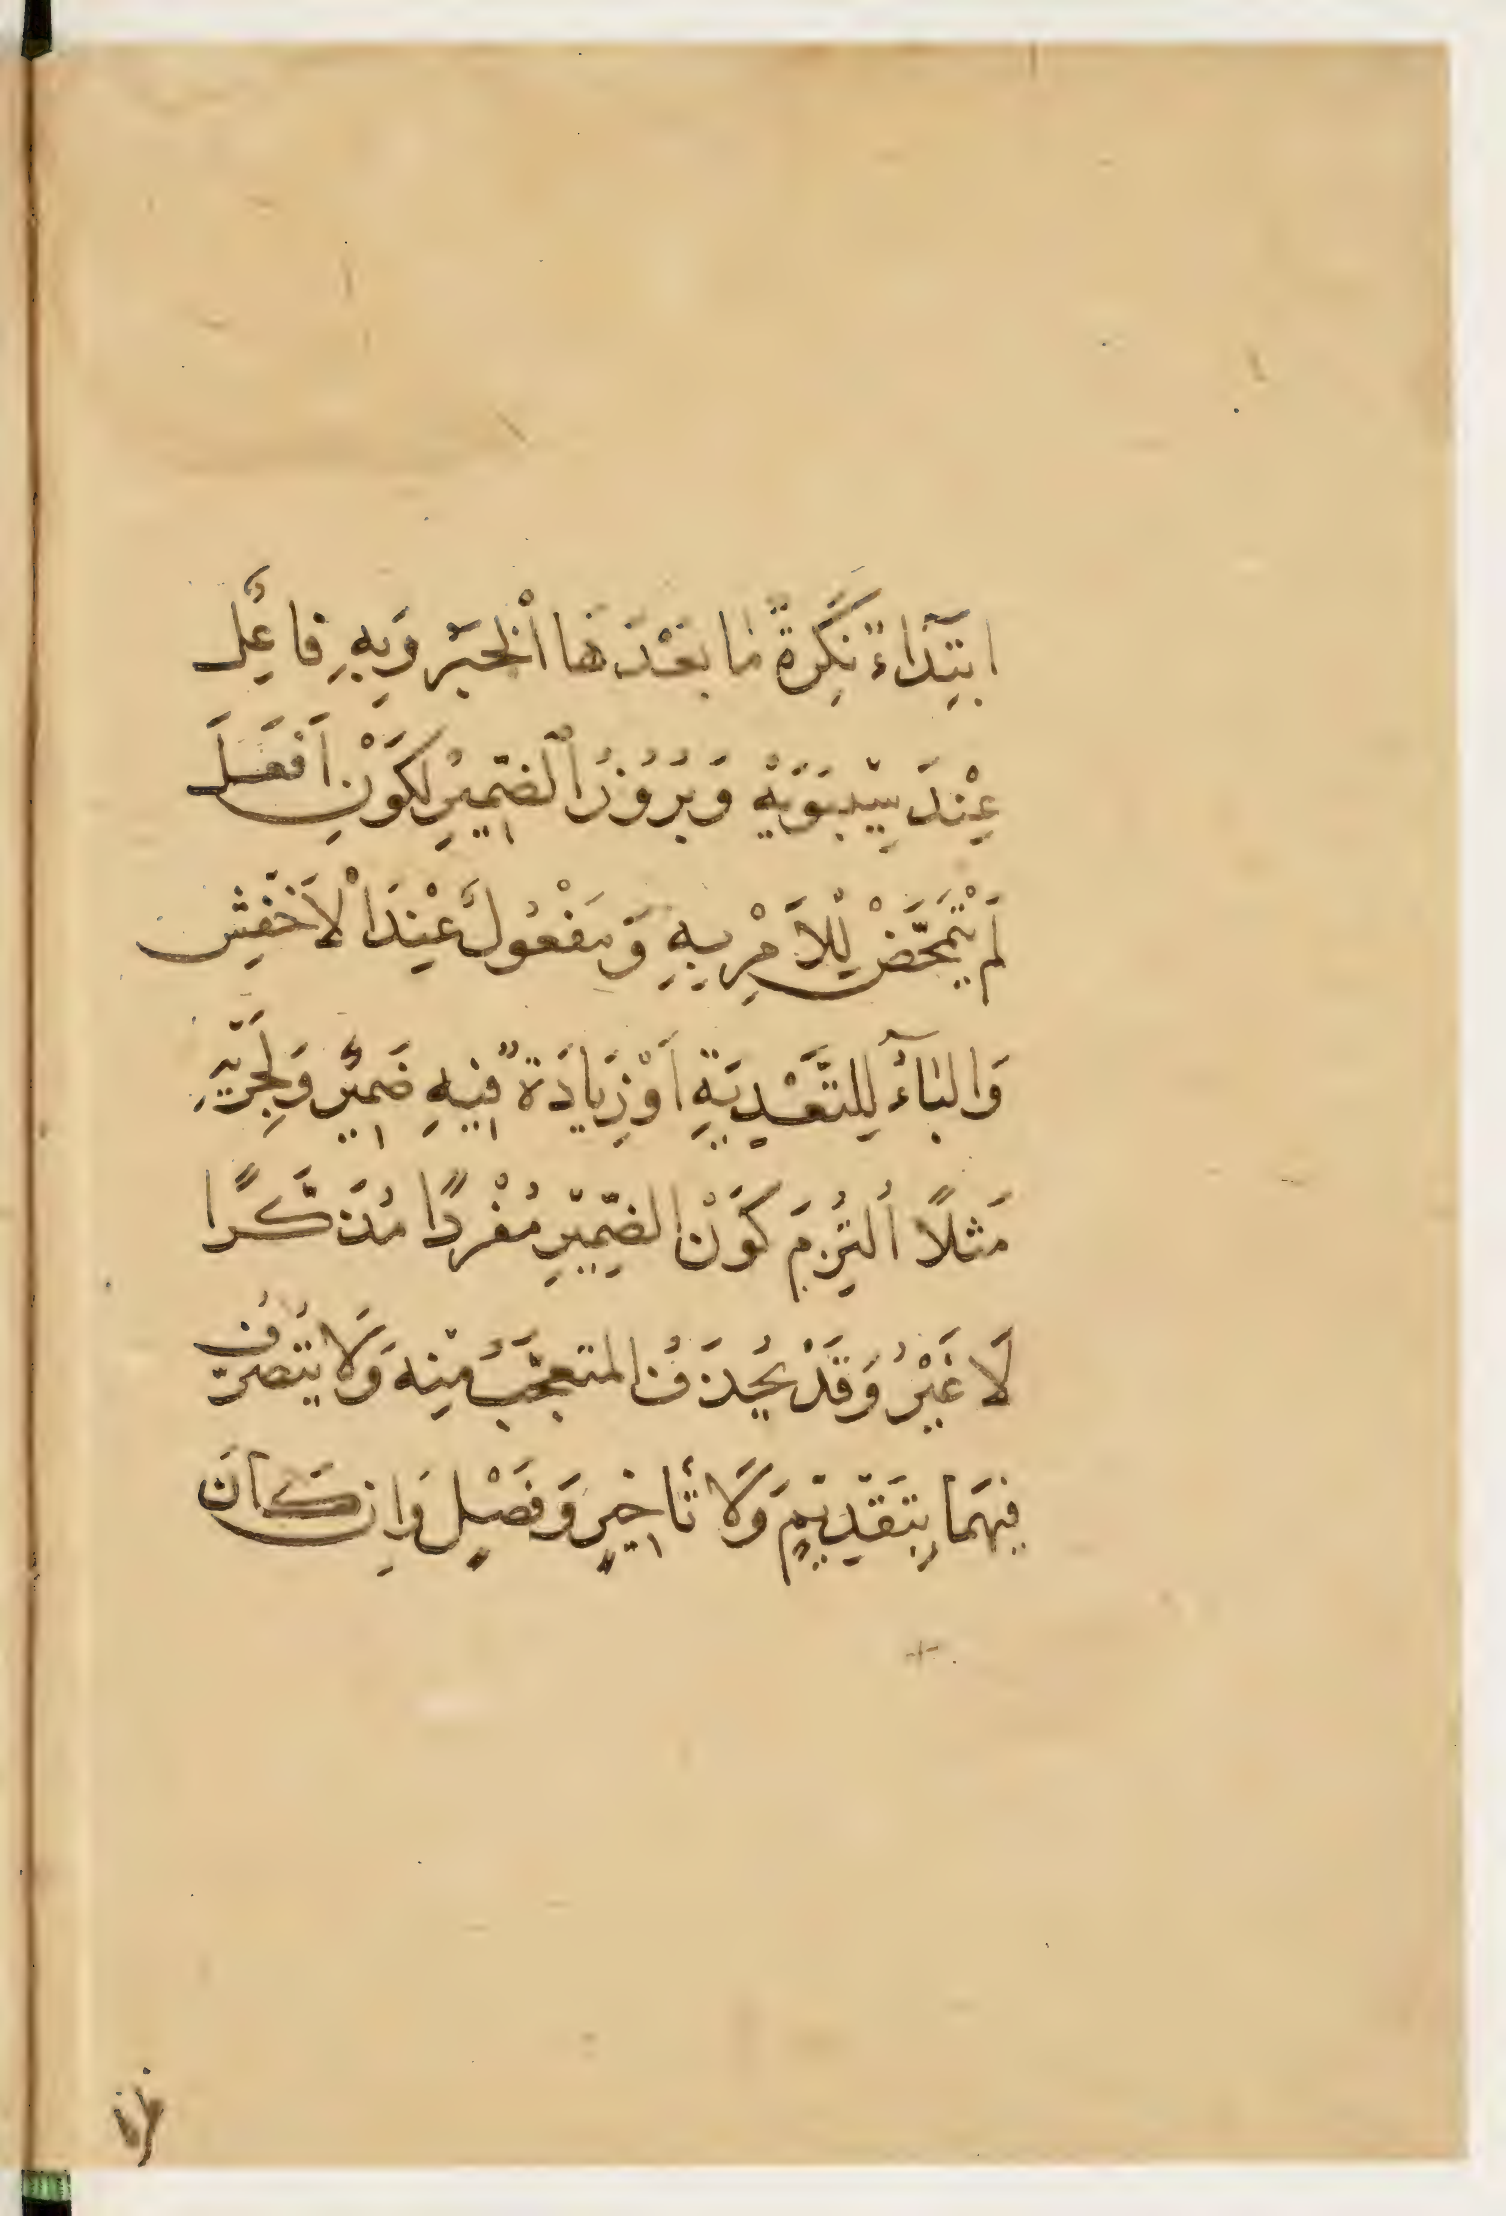 ابْتِدَاءٌ نَكِرَةٌ مَا بَعْدَهَا الْخَبَرُ وَبِهِ فَاعِلٌ
عِنْدَ سِيبَوَيْهِ وَبُرُوزُ الْضَمِيرِ لِكَوْنِ اَفْعَلَ
لَمْ يَتَمَحَّضْ لِلْاَمْرِ بِهِ وَمَفْعُولٌ عِنْدَ الْاَخْفَشِ
وَالْبَاءُ لِلتَّعْدِيَةِ اَوْ زِيَادَةٌ فِيهِ ضَمِيرٌ وَلِجَرْيِهِ
مَثَلًا اُلْتُزِمَ كَوْنُ الضَّمِيرِ مُفْرَدًا مُذَكَّرًا
لَا غَيْرُ وَقَدْ يُحْذَفُ المتعجَّبُ مِنْهُ وَلَا يَتَصَرَّفُ
فِيهِمَا بِتَقْدِيمٍ وَلَا تَأخِيرٍ وَفَصْلٍ وَاِن كَانَ